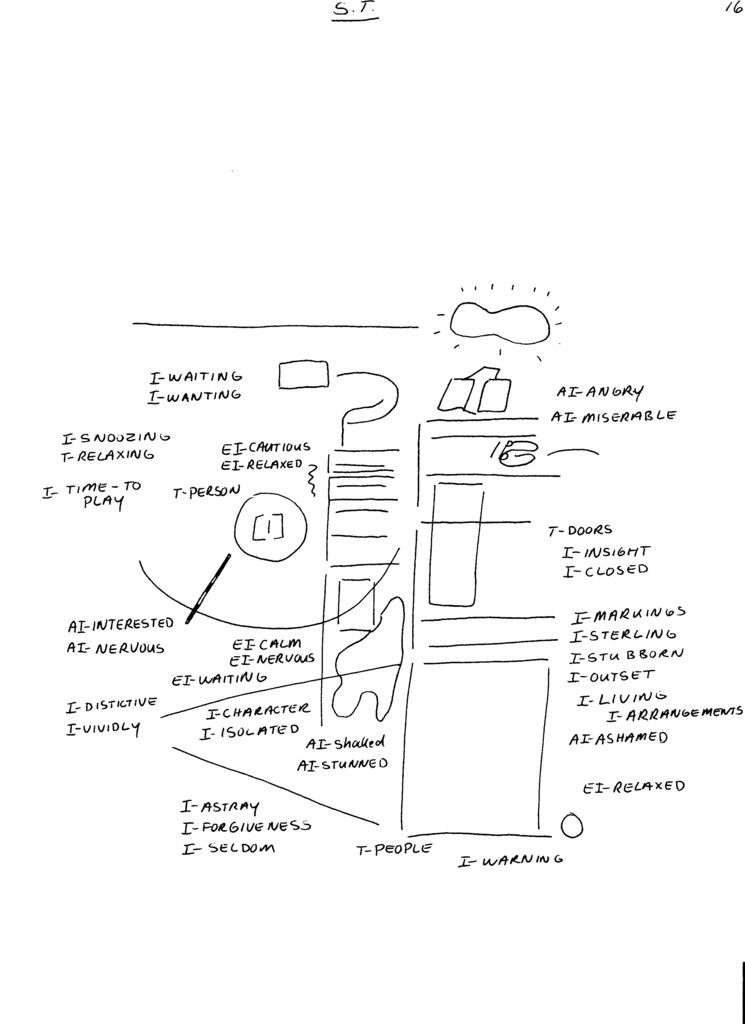 S.T.
16
I-WAITING
I-WANTING
AI-ANGRY
AI-MISERABLE
I-SNOOZING
T-RELAXING
EI-CAUTIOUS
EI-RELAXED
I- TIME-TO
PLAY
T-PERSON
T-DOORS
I-INSIGHT
I-CLOSED
AI-INTERESTED
AI-NERVOUS
EI-CALM
EI-NERVOUS
EI-WAITING
I-MARKINGS
I-STERLING
I-STUBBORN
I-OUTSET
I-LIVING
I-ARRANGEMENTS
AI-ASHAMED
I-DISTICTIVE
I-VIVIDLY
I-CHARACTER
I-ISOLATED
AI-Shaked
AI-STUNNED
EI-RELAXED
I-ASTRAY
I-FORGIVENESS
I-SELDOM
T-PEOPLE
I-WARNING